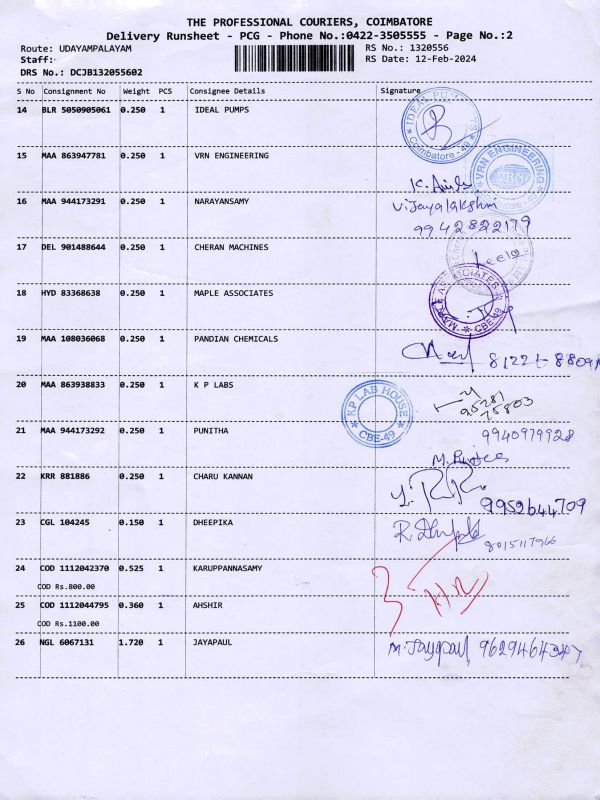 THE PROFESSIONAL COURIERS, COIMBATORE
Delivery Runsheet - PCG - Phone No.:0422-3505555 - Page No.:2
Route: UDAYAMPALAYAM
RS No.: 1320556
Staff:
RS Date: 12-Feb-2024
DRS No.: DCJB132055602
S No Consignment No Weight PCS Consignee Details Signature
14 BLR 5050905061 0.250 1 IDEAL PUMPS
IDEAL PUMPS
Coimbatore - 49
15 MAA 863947781 0.250 1 VRN ENGINEERING
VRN ENGINEERING
VRN
16 MAA 944173291 0.250 1 NARAYANSAMY
Vijayalakshmi
9942822179
17 DEL 901488644 0.250 1 CHERAN MACHINES
Leela
18 HYD 83368638 0.250 1 MAPLE ASSOCIATES
MAPLE ASSOCIATES
CBE-49
19 MAA 108036068 0.250 1 PANDIAN CHEMICALS
20 MAA 863938833 0.250 1 K P LABS
K P LAB HOUSE
CBE-49
95281
75803
21 MAA 944173292 0.250 1 PUNITHA
9940979928
22 KRR 881886 0.250 1 CHARU KANNAN
9952644709
23 CGL 104245 0.150 1 DHEEPIKA
8015117966
24 COD 1112042370 0.525 1 KARUPPANNASAMY
COD Rs.800.00
25 COD 1112044795 0.360 1 AHSHIR
COD Rs.1100.00
26 NGL 6067131 1.720 1 JAYAPAUL
M. Jaypaul